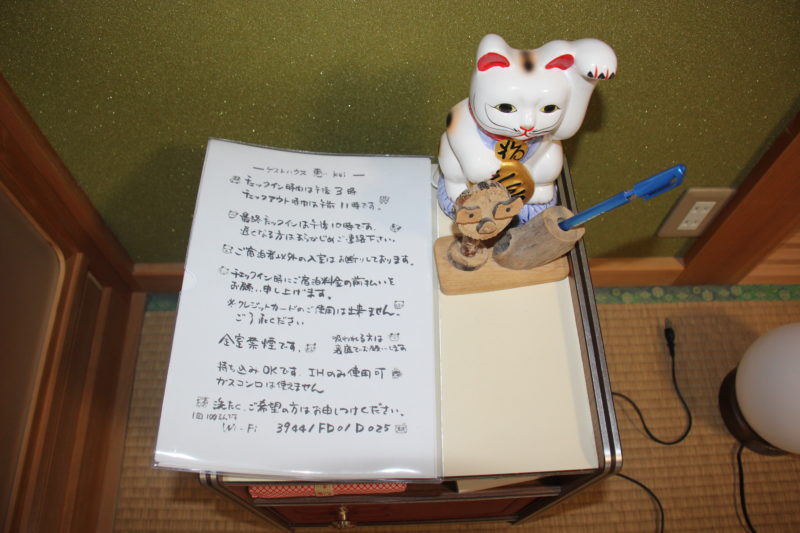 ゲストハウス 恵 kei
チェックイン時間は午後3時
チェックアウト時間は午前11時です。
最終チェックインは午後10時です。
遅くなる方はあらかじめご連絡下さい。
ご宿泊者以外の入室はお断りしております。
チェックイン時にご宿泊料金の前払いを
お願い申し上げます。
※クレジットカードのご使用は出来ません。
ご了承ください
全室禁煙です。 吸われる方は
玄関でお願いします
持ち込みOKです。IHのみ使用可
ガスコンロは使えません
洗たくご希望の方はお申しつけください。
Wi-Fi 39441FD01D025